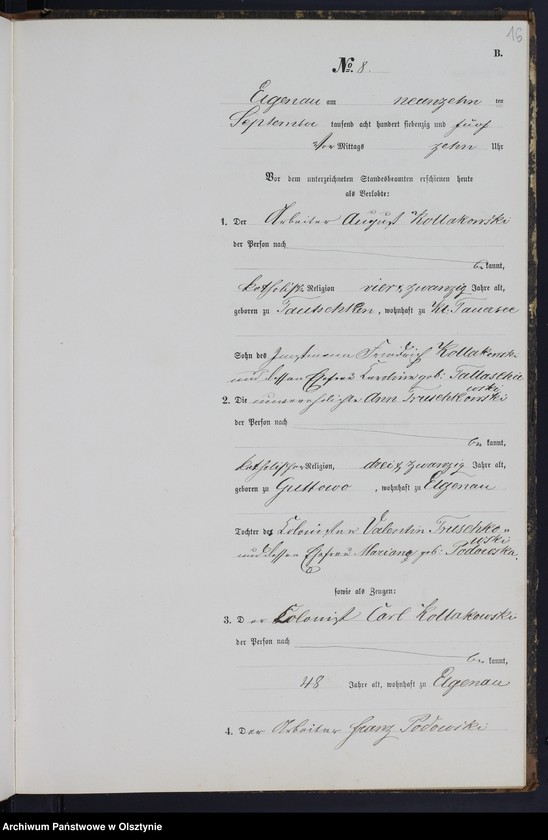 16
B.
No. 8.
Eigenau am neunzehn ten
September tausend acht hundert siebenzig und fünf
Vor Mittags zehn Uhr
Vor dem unterzeichneten Standesbeamten erschienen heute
als Verlobte:
1. Der Arbeiter August Kollakowski
der Person nach
be kannt,
katholisch Religion vier & zwanzig Jahre alt,
geboren zu Tautschken, wohnhaft zu Kl. Tauersee
Sohn des Instmann Friedrich Kollakowski
und dessen Ehefrau Karoline geb:
2. Die unverehelichte Ann Truschkowski
der Person nach
be kannt,
katholischer Religion, drei & zwanzig Jahre alt,
geboren zu Guttowo, wohnhaft zu Eigenau
Tochter des Kolonisten Valentin Truschko-
wski
und dessen Ehefrau Marianna geb: Podowska.
sowie als Zeugen:
3. Der Kolonist Carl Kollakowski
der Person nach
be kannt,
48 Jahre alt, wohnhaft zu Eigenau
4. Der Arbeiter Franz Podowski
Archiwum Państwowe w Olsztynie